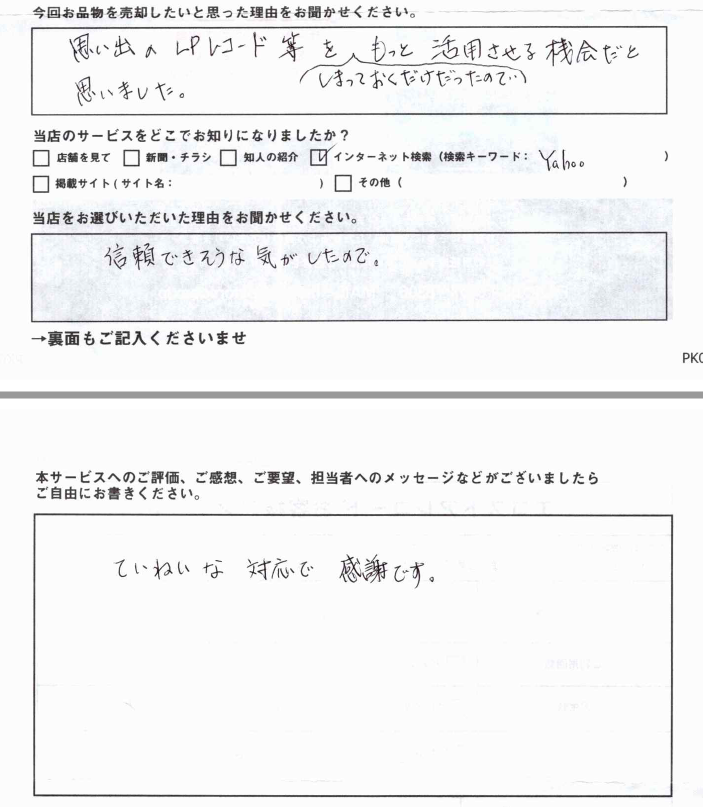 今回お品物を売却したいと思った理由をお聞かせください。
思い出のLPレコード等を、もっと活用させる機会だと
(しまっておくだけだったので‥)
思いました。
当店のサービスをどこでお知りになりましたか?
□ 店舗を見て □ 新聞・チラシ □ 知人の紹介 ☑ インターネット検索(検索キーワード: Yahoo )
□ 掲載サイト(サイト名: ) □ その他( )
当店をお選びいただいた理由をお聞かせください。
信頼できそうな気がしたので。
→裏面もご記入くださいませ
PK0
本サービスへのご評価、ご感想、ご要望、担当者へのメッセージなどがございましたら
ご自由にお書きください。
ていねいな対応で感謝です。